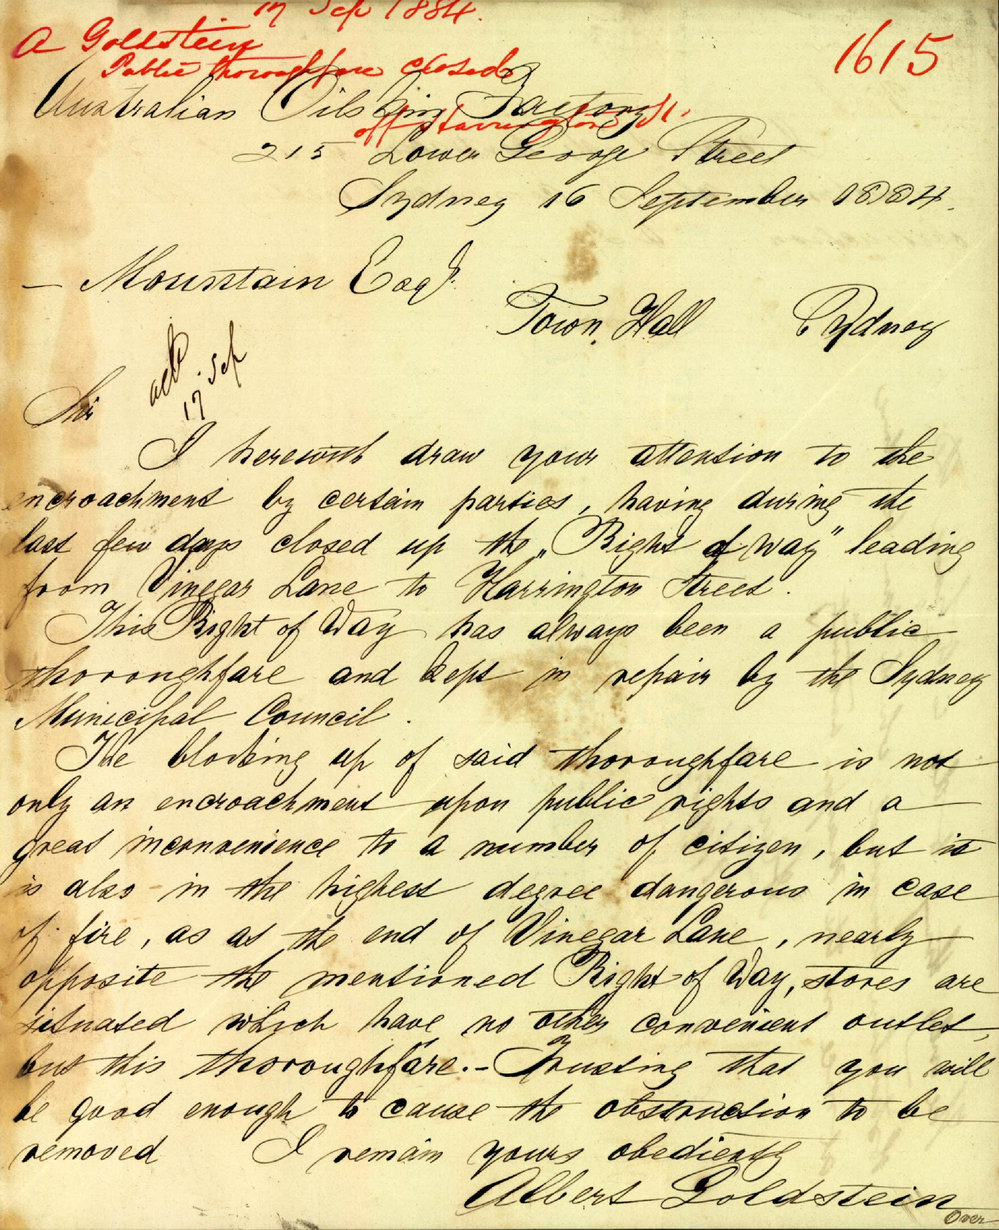 17 Sep 1884.
A Goldstein
1615
Public thoroughfare closed
Australian Oilskin Factory
off Harrington St.
215 Lower George Street
Sydney 16 September 1884.
— Mountain Esq.
Town Hall Sydney
ack
17 Sep
Sir
I herewith draw your attention to the
encroachment by certain parties, having during the
last few days closed up the „Right of Way" leading
from Vinegar Lane to Harrington Street.
This Right of Way has always been a public
thoroughfare and kept in repair by the Sydney
Municipal Council.
The blocking up of said thoroughfare is not
only an encroachment upon public rights and a
great inconvenience to a number of citizen, but it
is also in the highest degree dangerous in case
of fire, as at the end of Vinegar Lane, nearly
opposite the mentioned Right of Way, stores are
situated which have no other convenient outlet,
but this thoroughfare. – Trusting that you will
be good enough to cause the obstruction to be
removed I remain yours obediently
Albert Goldstein
Over